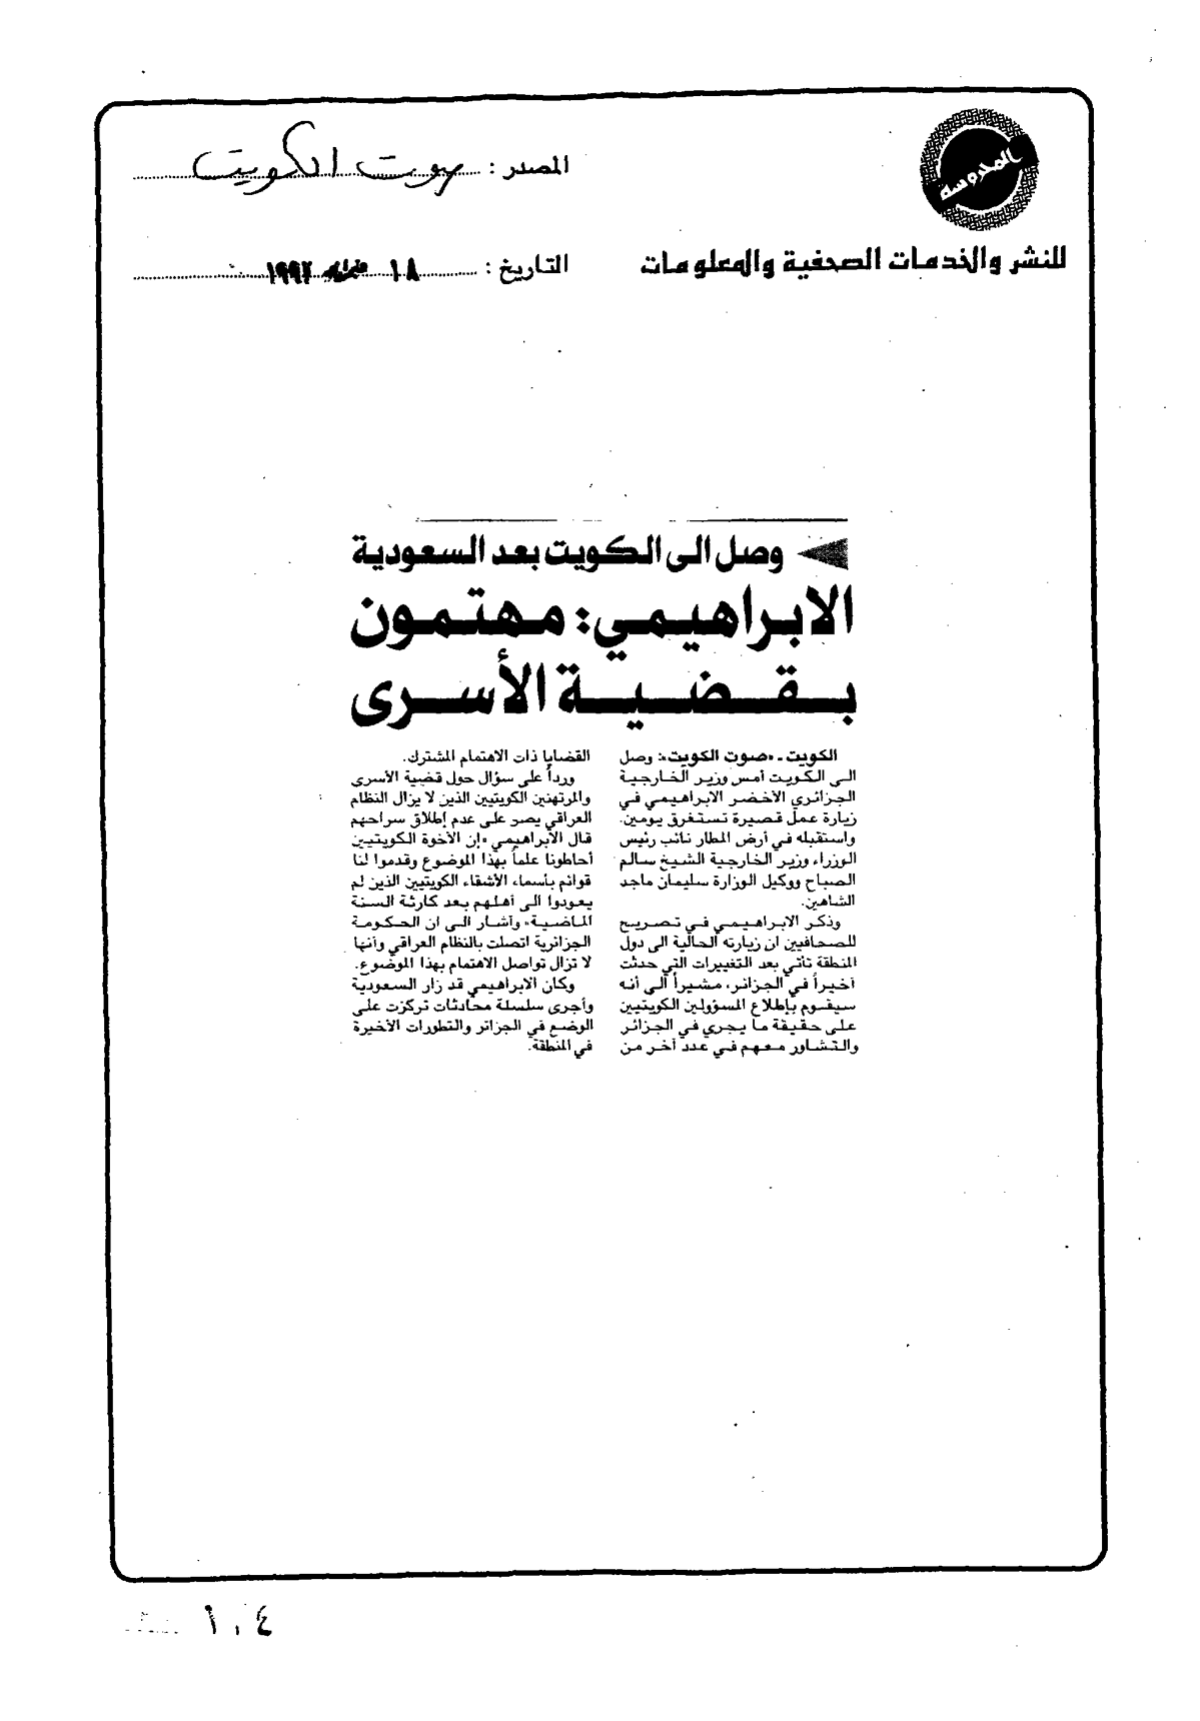 المحروسة
للنشر والخدمات الصحفية والمعلومات
المصدر : صوت الكويت
التاريخ : ١٨ فبراير ١٩٩٢
وصل الى الكويت بعد السعودية
الابراهيمي: مهتمون
بقضية الأسرى
الكويت ـ «صوت الكويت»: وصل
الى الكويت أمس وزير الخارجية
الجزائري الأخضر الابراهيمي في
زيارة عمل قصيرة تستغرق يومين.
واستقبله في أرض المطار نائب رئيس
الوزراء وزير الخارجية الشيخ سالم
الصباح ووكيل الوزارة سليمان ماجد
الشاهين.
وذكر الابراهيمي في تصريح
للصحافيين ان زيارته الحالية الى دول
المنطقة تأتي بعد التغييرات التي حدثت
أخيراً في الجزائر، مشيراً الى أنه
سيقوم بإطلاع المسؤولين الكويتيين
على حقيقة ما يجري في الجزائر
والتشاور معهم في عدد آخر من
القضايا ذات الاهتمام المشترك.
ورداً على سؤال حول قضية الأسرى
والمرتهنين الكويتيين الذين لا يزال النظام
العراقي يصر على عدم إطلاق سراحهم
قال الابراهيمي «إن الأخوة الكويتيين
أحاطونا علماً بهذا الموضوع وقدموا لنا
قوائم بأسماء الأشقاء الكويتيين الذين لم
يعودوا الى أهلهم بعد كارثة السنة
الماضية» وأشار الى ان الحكومة
الجزائرية اتصلت بالنظام العراقي وأنها
لا تزال تواصل الاهتمام بهذا الموضوع.
وكان الابراهيمي قد زار السعودية
وأجرى سلسلة محادثات تركزت على
الوضع في الجزائر والتطورات الأخيرة
في المنطقة.
١٠٤